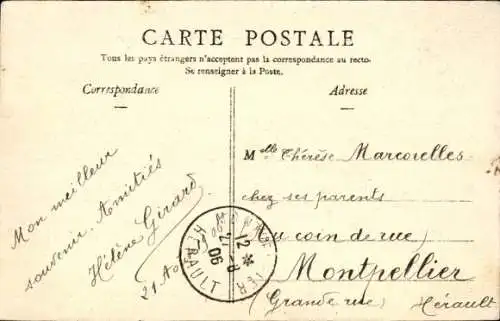 CARTE POSTALE
Tous les pays étrangers n'acceptent pas la correspondance au recto.
Se renseigner à la Poste.
Correspondance
Adresse
Mon meilleur
souvenir. Amitiés
Hélène Girard
21 Août
Mlle Thérèse Marcorelles
chez ses parents
(au coin de rue)
Montpellier
(Grande rue) Hérault
12
21 -8
06
HÉRAULT